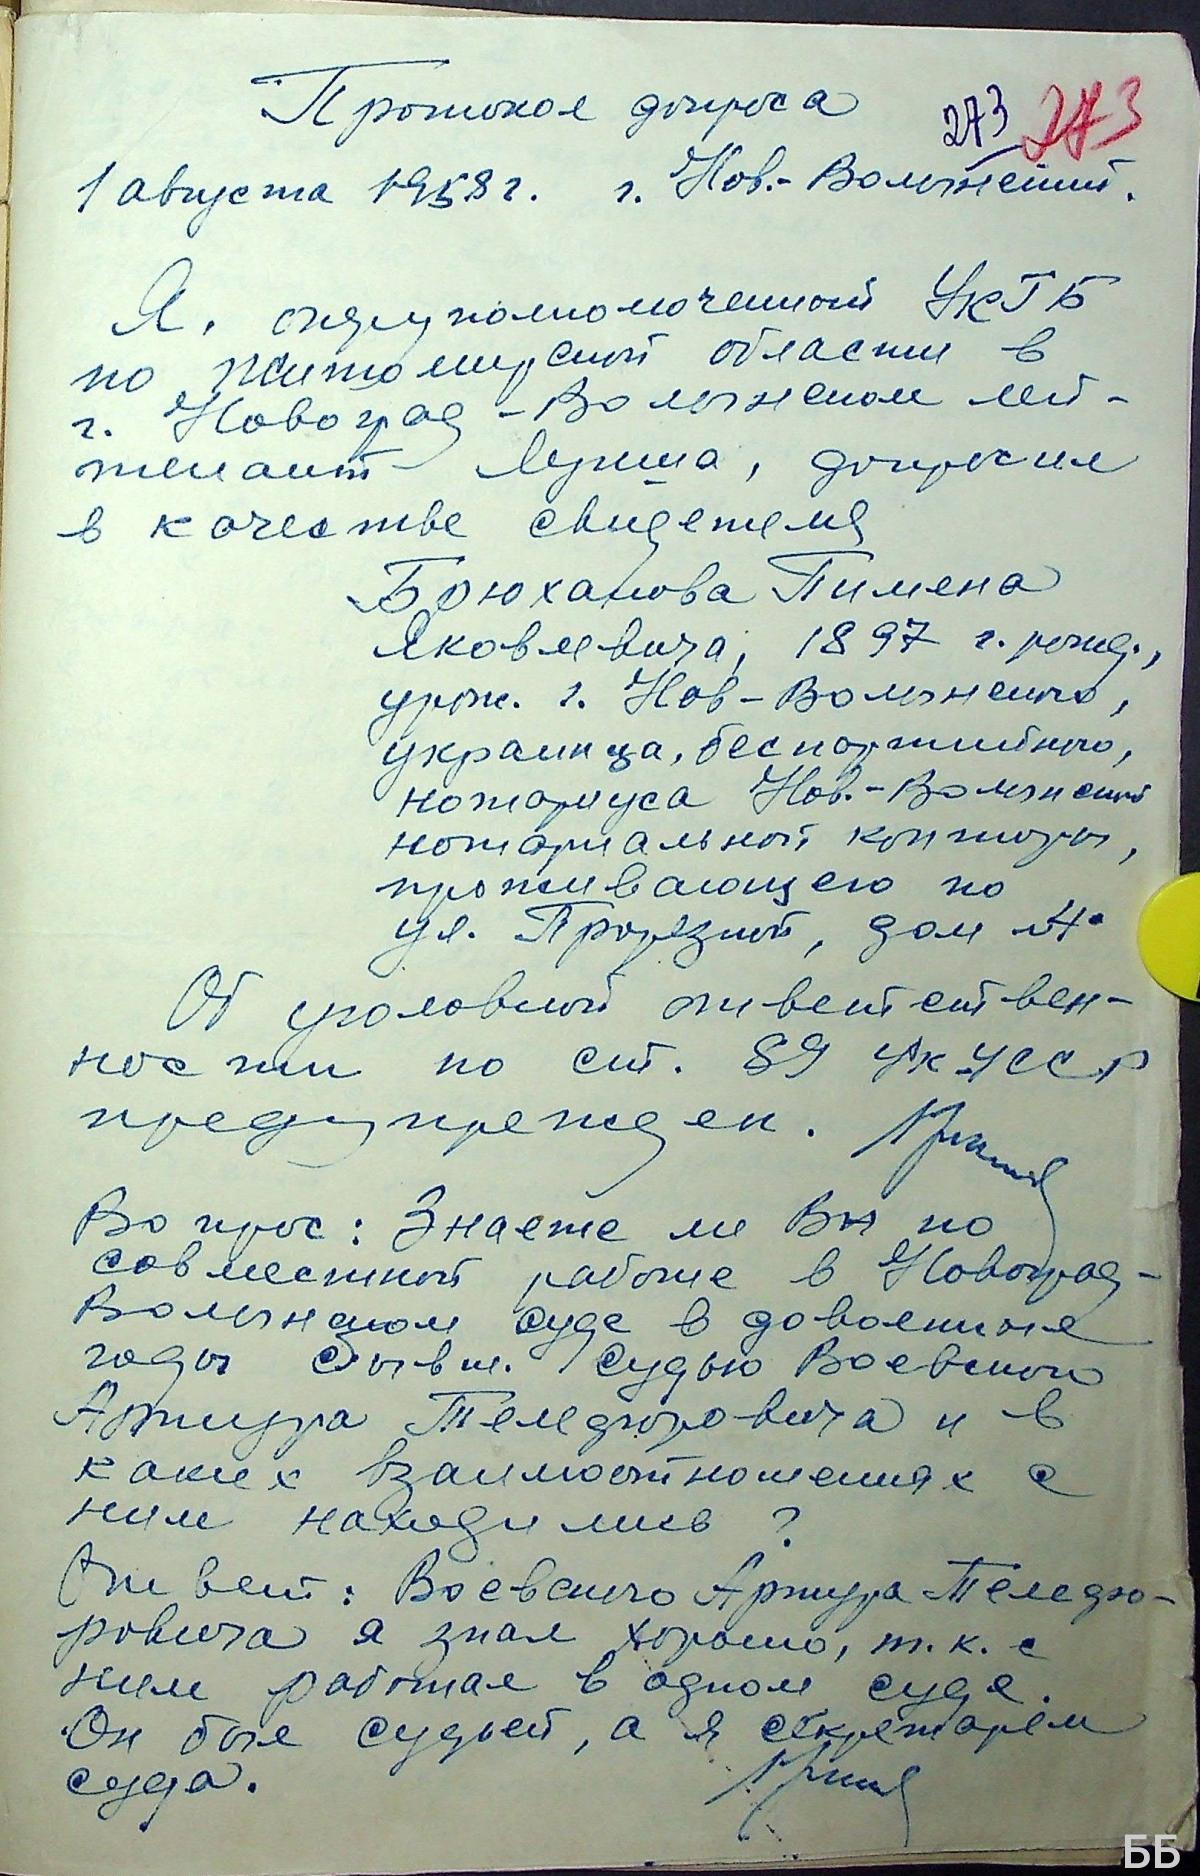 Протокол допроса
273 273
1 августа 1958 г. г. Нов.-Волынский.
Я, оперуполномоченный УКГБ
по Житомирской области в
г. Новоград-Волынском лей-
тенант допросил
в качестве свидетеля
Брюханова Пимена
Яковлевича, 1897 г. рожд.,
урож. г. Нов-Волынского,
украинца, беспартийного,
нотариуса Нов.-Волынской
нотариальной конторы,
проживающего по
ул. Прорезной, дом №4
Об уголовной ответствен-
ности по ст. 89 УК УССР
предупрежден.
Вопрос: Знаете ли Вы по
совместной работе в Новоград-
Волынском суде в довоенные
годы бывш. судью Воевского
Артура Теледоровича и в
каких взаимоотношениях с
ним находились?
Ответ: Воевского Артура Теледо-
ровича я знал хорошо, т.к. с
ним работал в одном суде.
Он был судьей, а я секретарем
суда.
ББ